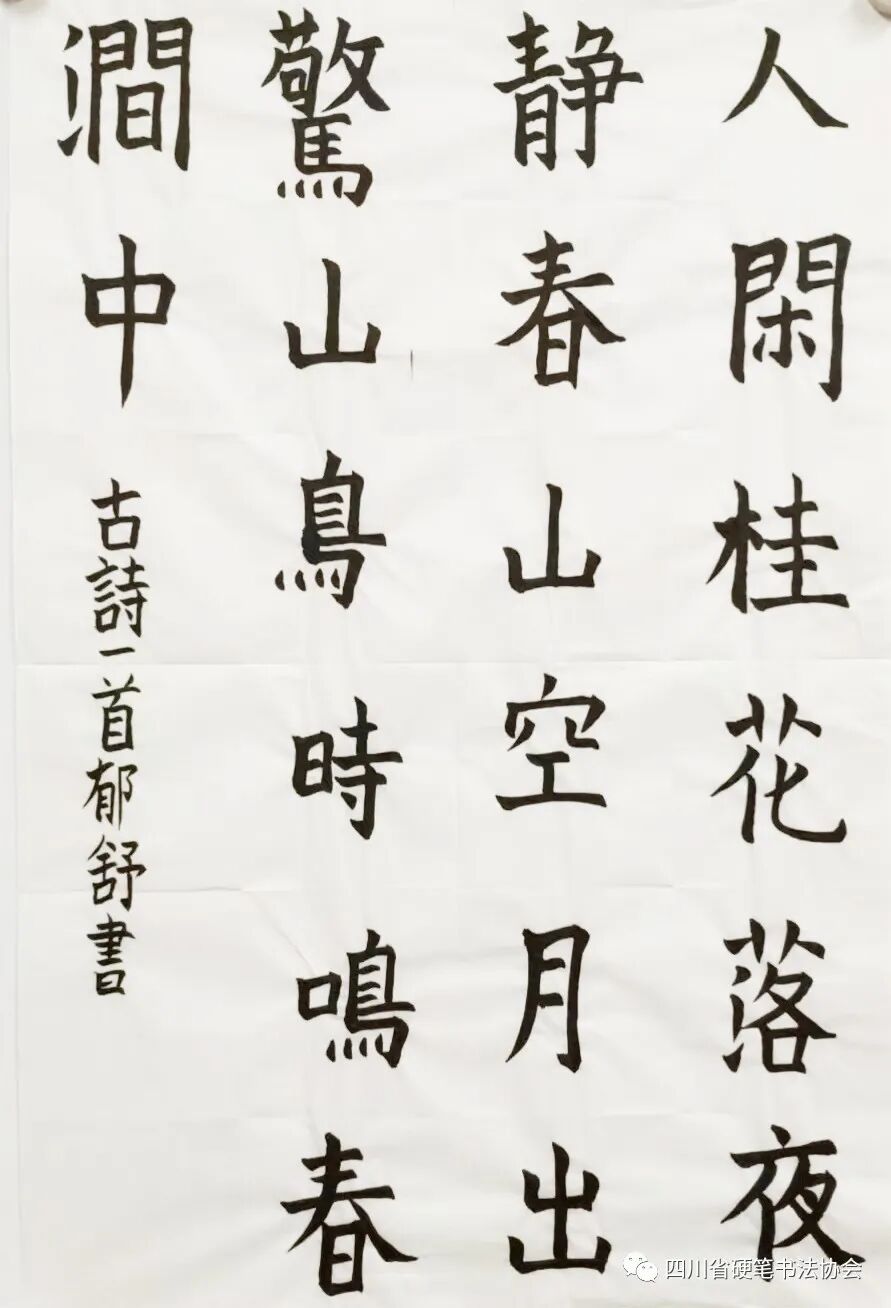 人閑桂花落夜
静春山空月出
驚山鳥時鳴春
澗中
古詩一首郁舒書
四川省硬笔书法协会